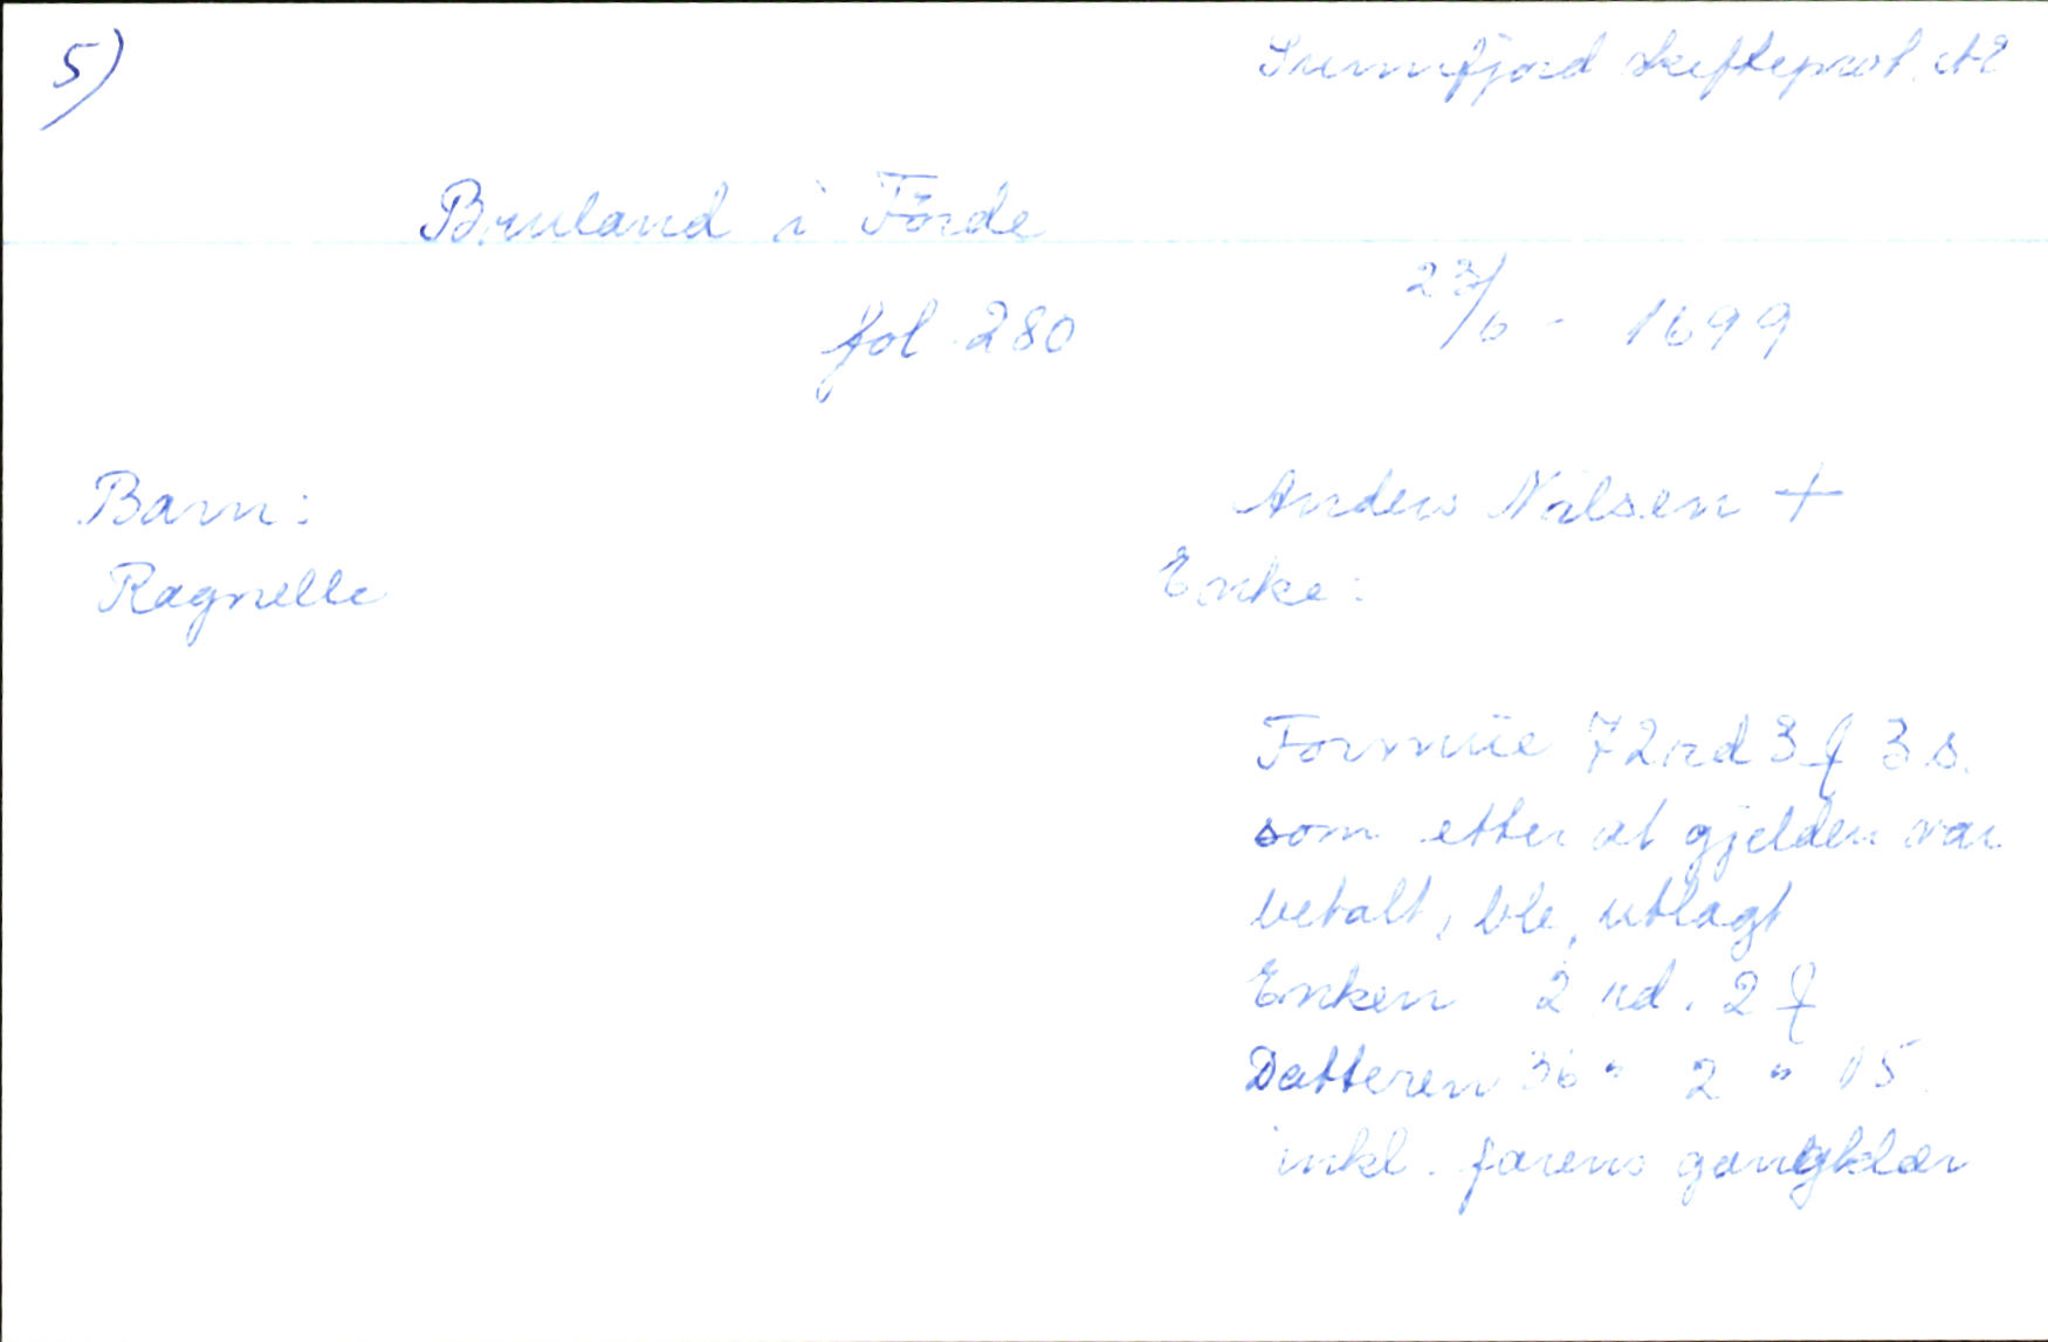 5)
Sunnfjord skifteprot. A2
Bruland i Förde
fol. 280 23/6 - 1699
Barn: Anders Nilsen +
Ragnelle Enke:
Formüe 72 rd 3 ₰ 3 s.
som etter at gjelden var
betalt, ble, utlagt
Enken 2 rd. 2 ₰
Datteren 36 " 2 " 15
inkl. farens gangklær